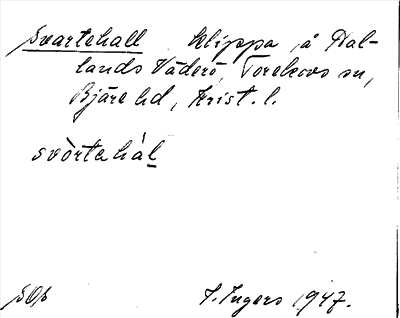 Svartehall klippa å Hal-
lands Väderö, Torekovs sn,
Bjäre hd, Krist. l.
svòrtehál
SOf
I. Ingers 1947.